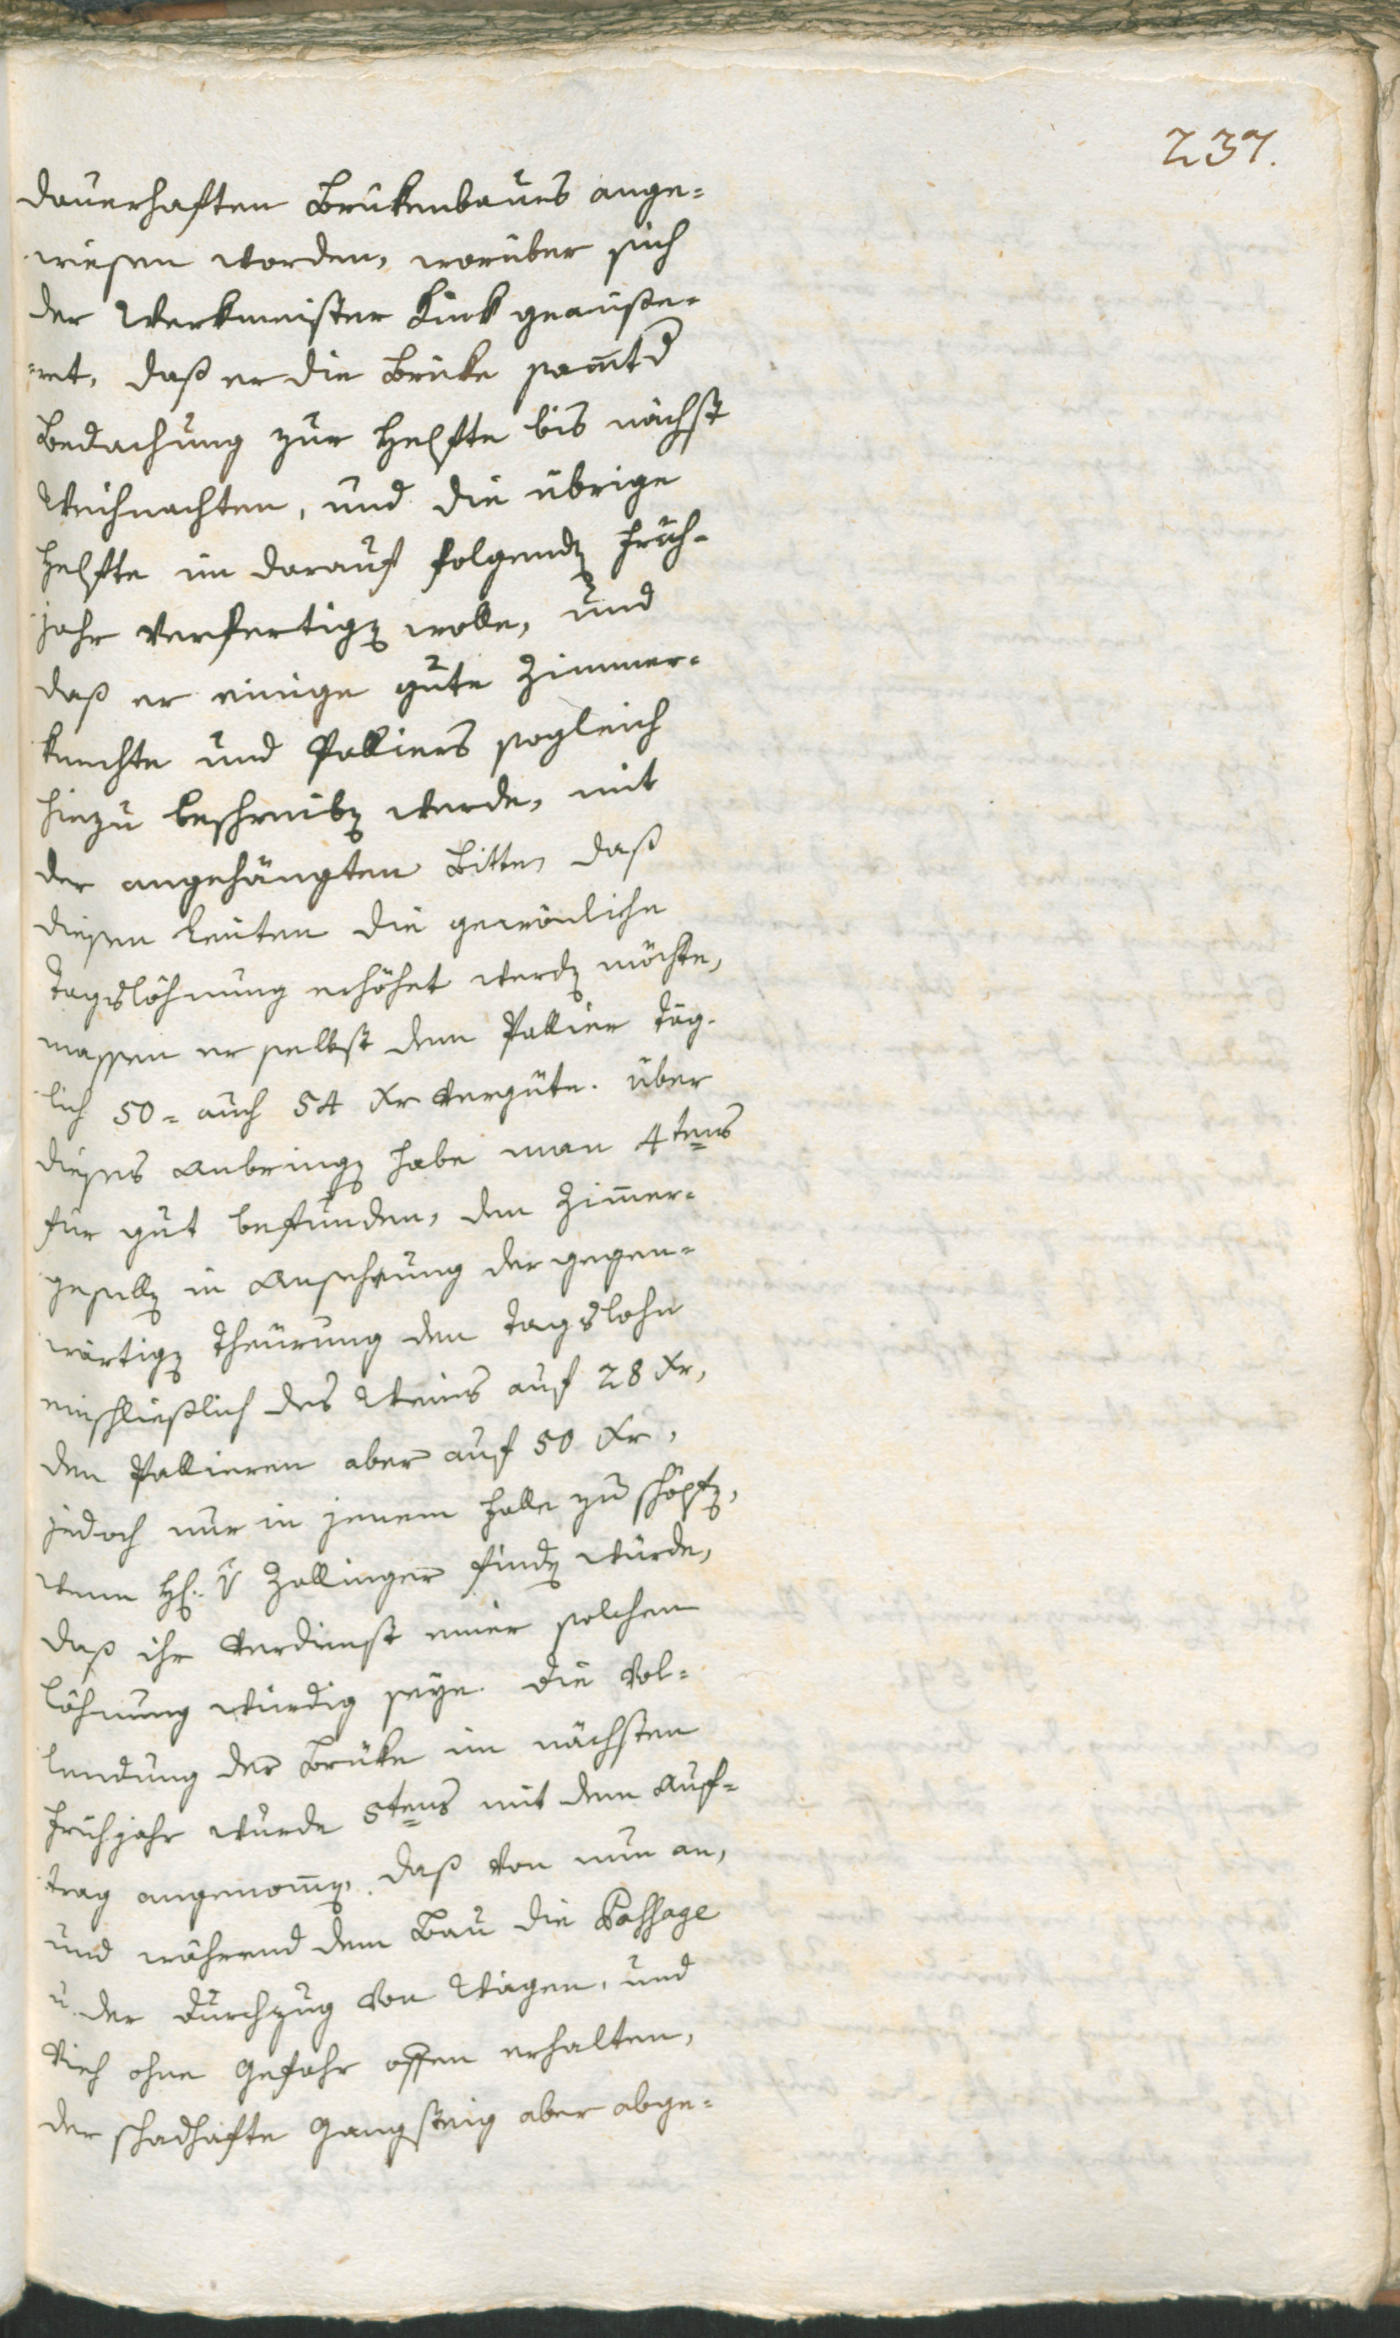 237.
dauerhaften Brükenbaues ange-
wiesen worden, worüber sich
der Werkmeister Kink geäuße-
-ret, daß er die Brüke sam̄t d
Bedachung zur Helfte bis nächst
Weihnachten, und die übrige
Helfte im darauf folgenden Früh-
jahr verfertigen wolle, und
daß er einige gute Zimmer-
knechte und Palliers sogleich
hiezu beschreiben werde, mit
der angehängten Bitte, daß
diesen Leuten die gewönliche
Tagslöhnung erhöhet werden möchte,
massen er selbst dem Pallier täg-
lich 50 = auch 54 Xr vergüte. Über
dieses Anbringen habe man 4tens
für gut befunden, den Zim̄er-
gesellen in Ansehung der gegen-
wärtigen Theürung den Tagslohn
einschließlich des Weins auf 28 Xr,
den Pallieren aber auf 50 Xr,
jedoch nur in jenem Falle zu schöpfen,
wenn H: v Zallinger finden würde,
daß ihr Verdienst einer solchen
Löhnung würdig seye. Die Vol-
lendung der Brüke im nächsten
Frühjahr wurde 5tens mit dem Auf-
trag angenom̄en, daß von nun an,
und während dem Bau die Passage
u. der Durchzug von Wägen, und
Vieh ohne Gefahr offen erhalten,
der schadhafte Gangsteig aber abge-